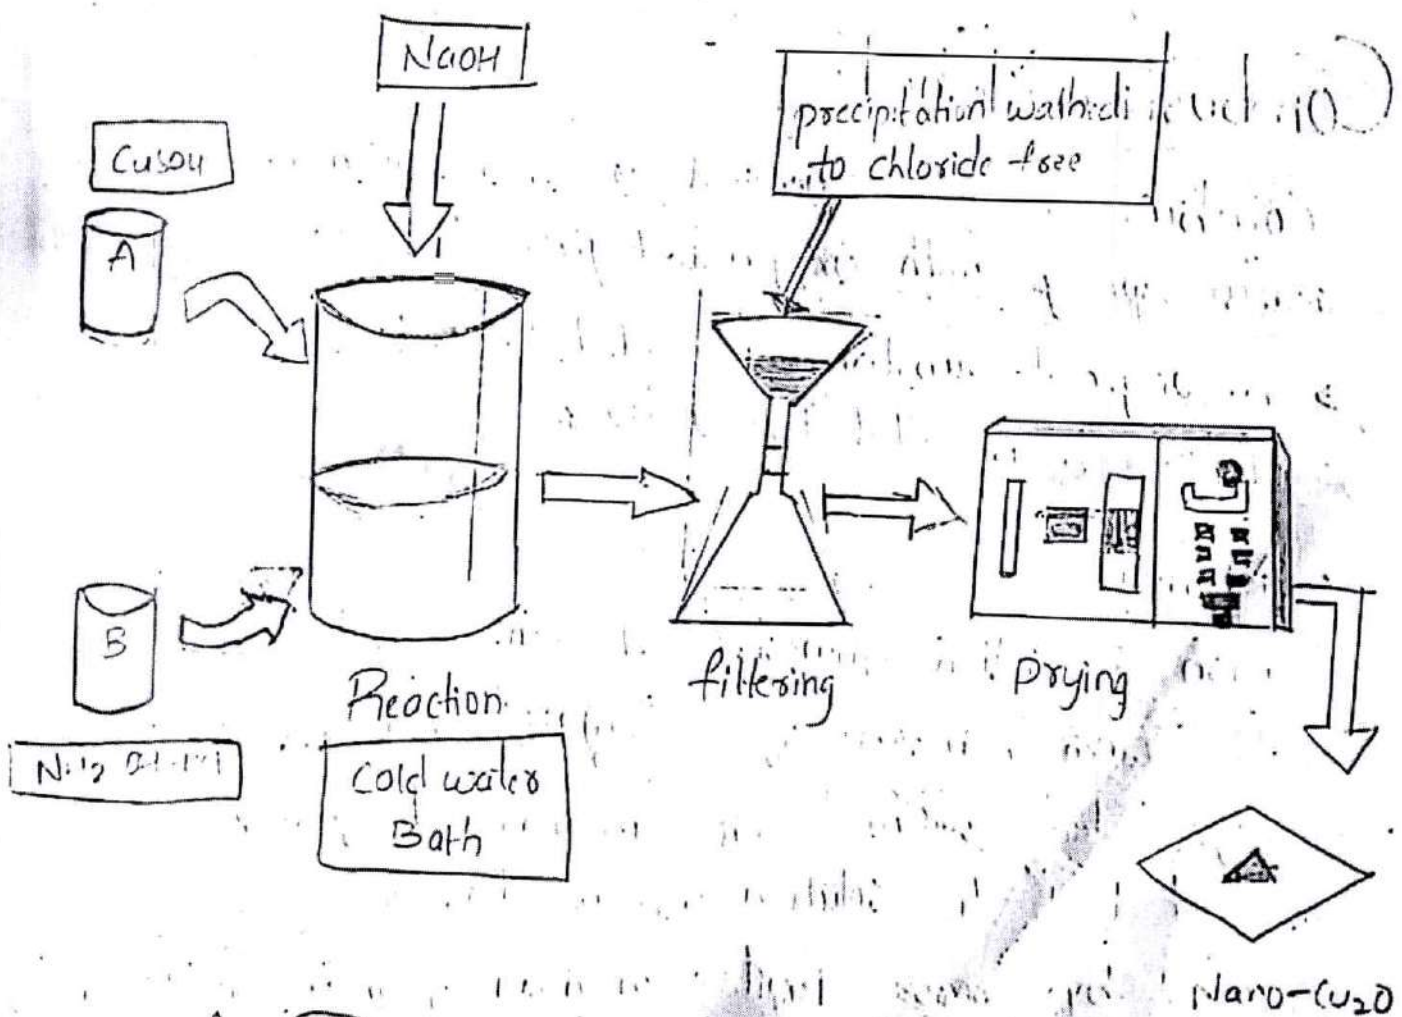 NaOH
CuSO4
A
precipitation washed
to chloride free
B
Reaction
Cold water
Bath
filtering
Drying
Nano-Cu2O